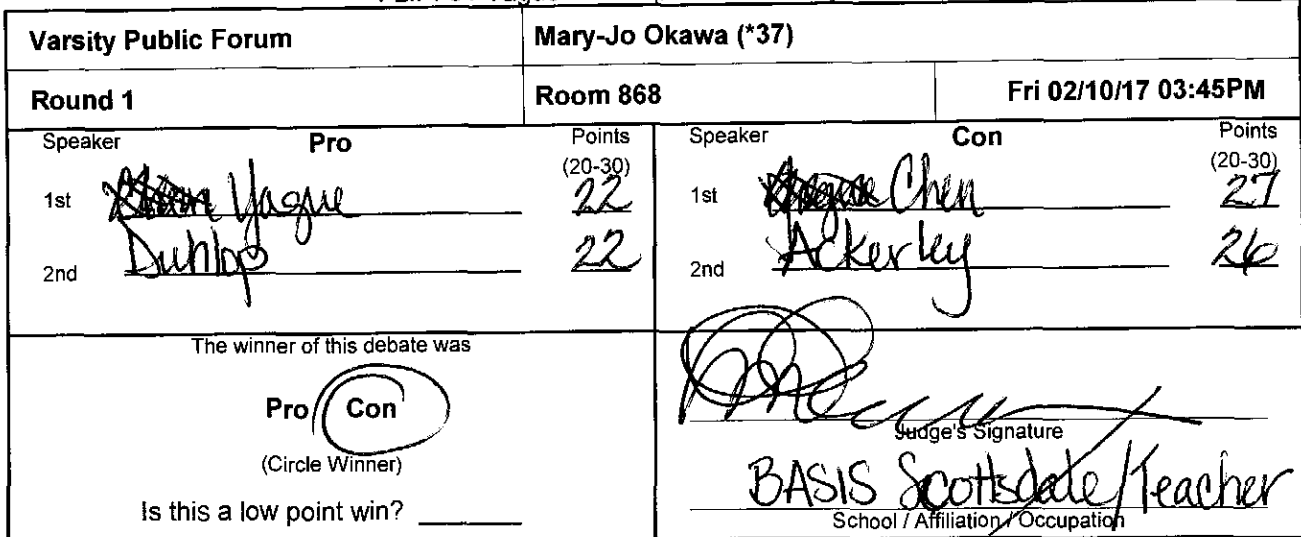 Varsity Public Forum
Mary-Jo Okawa (*37)
Round 1
Room 868
Fri 02/10/17 03:45PM
Speaker Pro Points
(20-30)
1st Yague 22
2nd Dunlop 22
Speaker Con Points
(20-30)
1st Chen 27
2nd Ackerley 26
The winner of this debate was
Pro / Con
(Circle Winner)
Is this a low point win?
Judge's Signature
BASIS Scottsdale/Teacher
School / Affiliation / Occupation